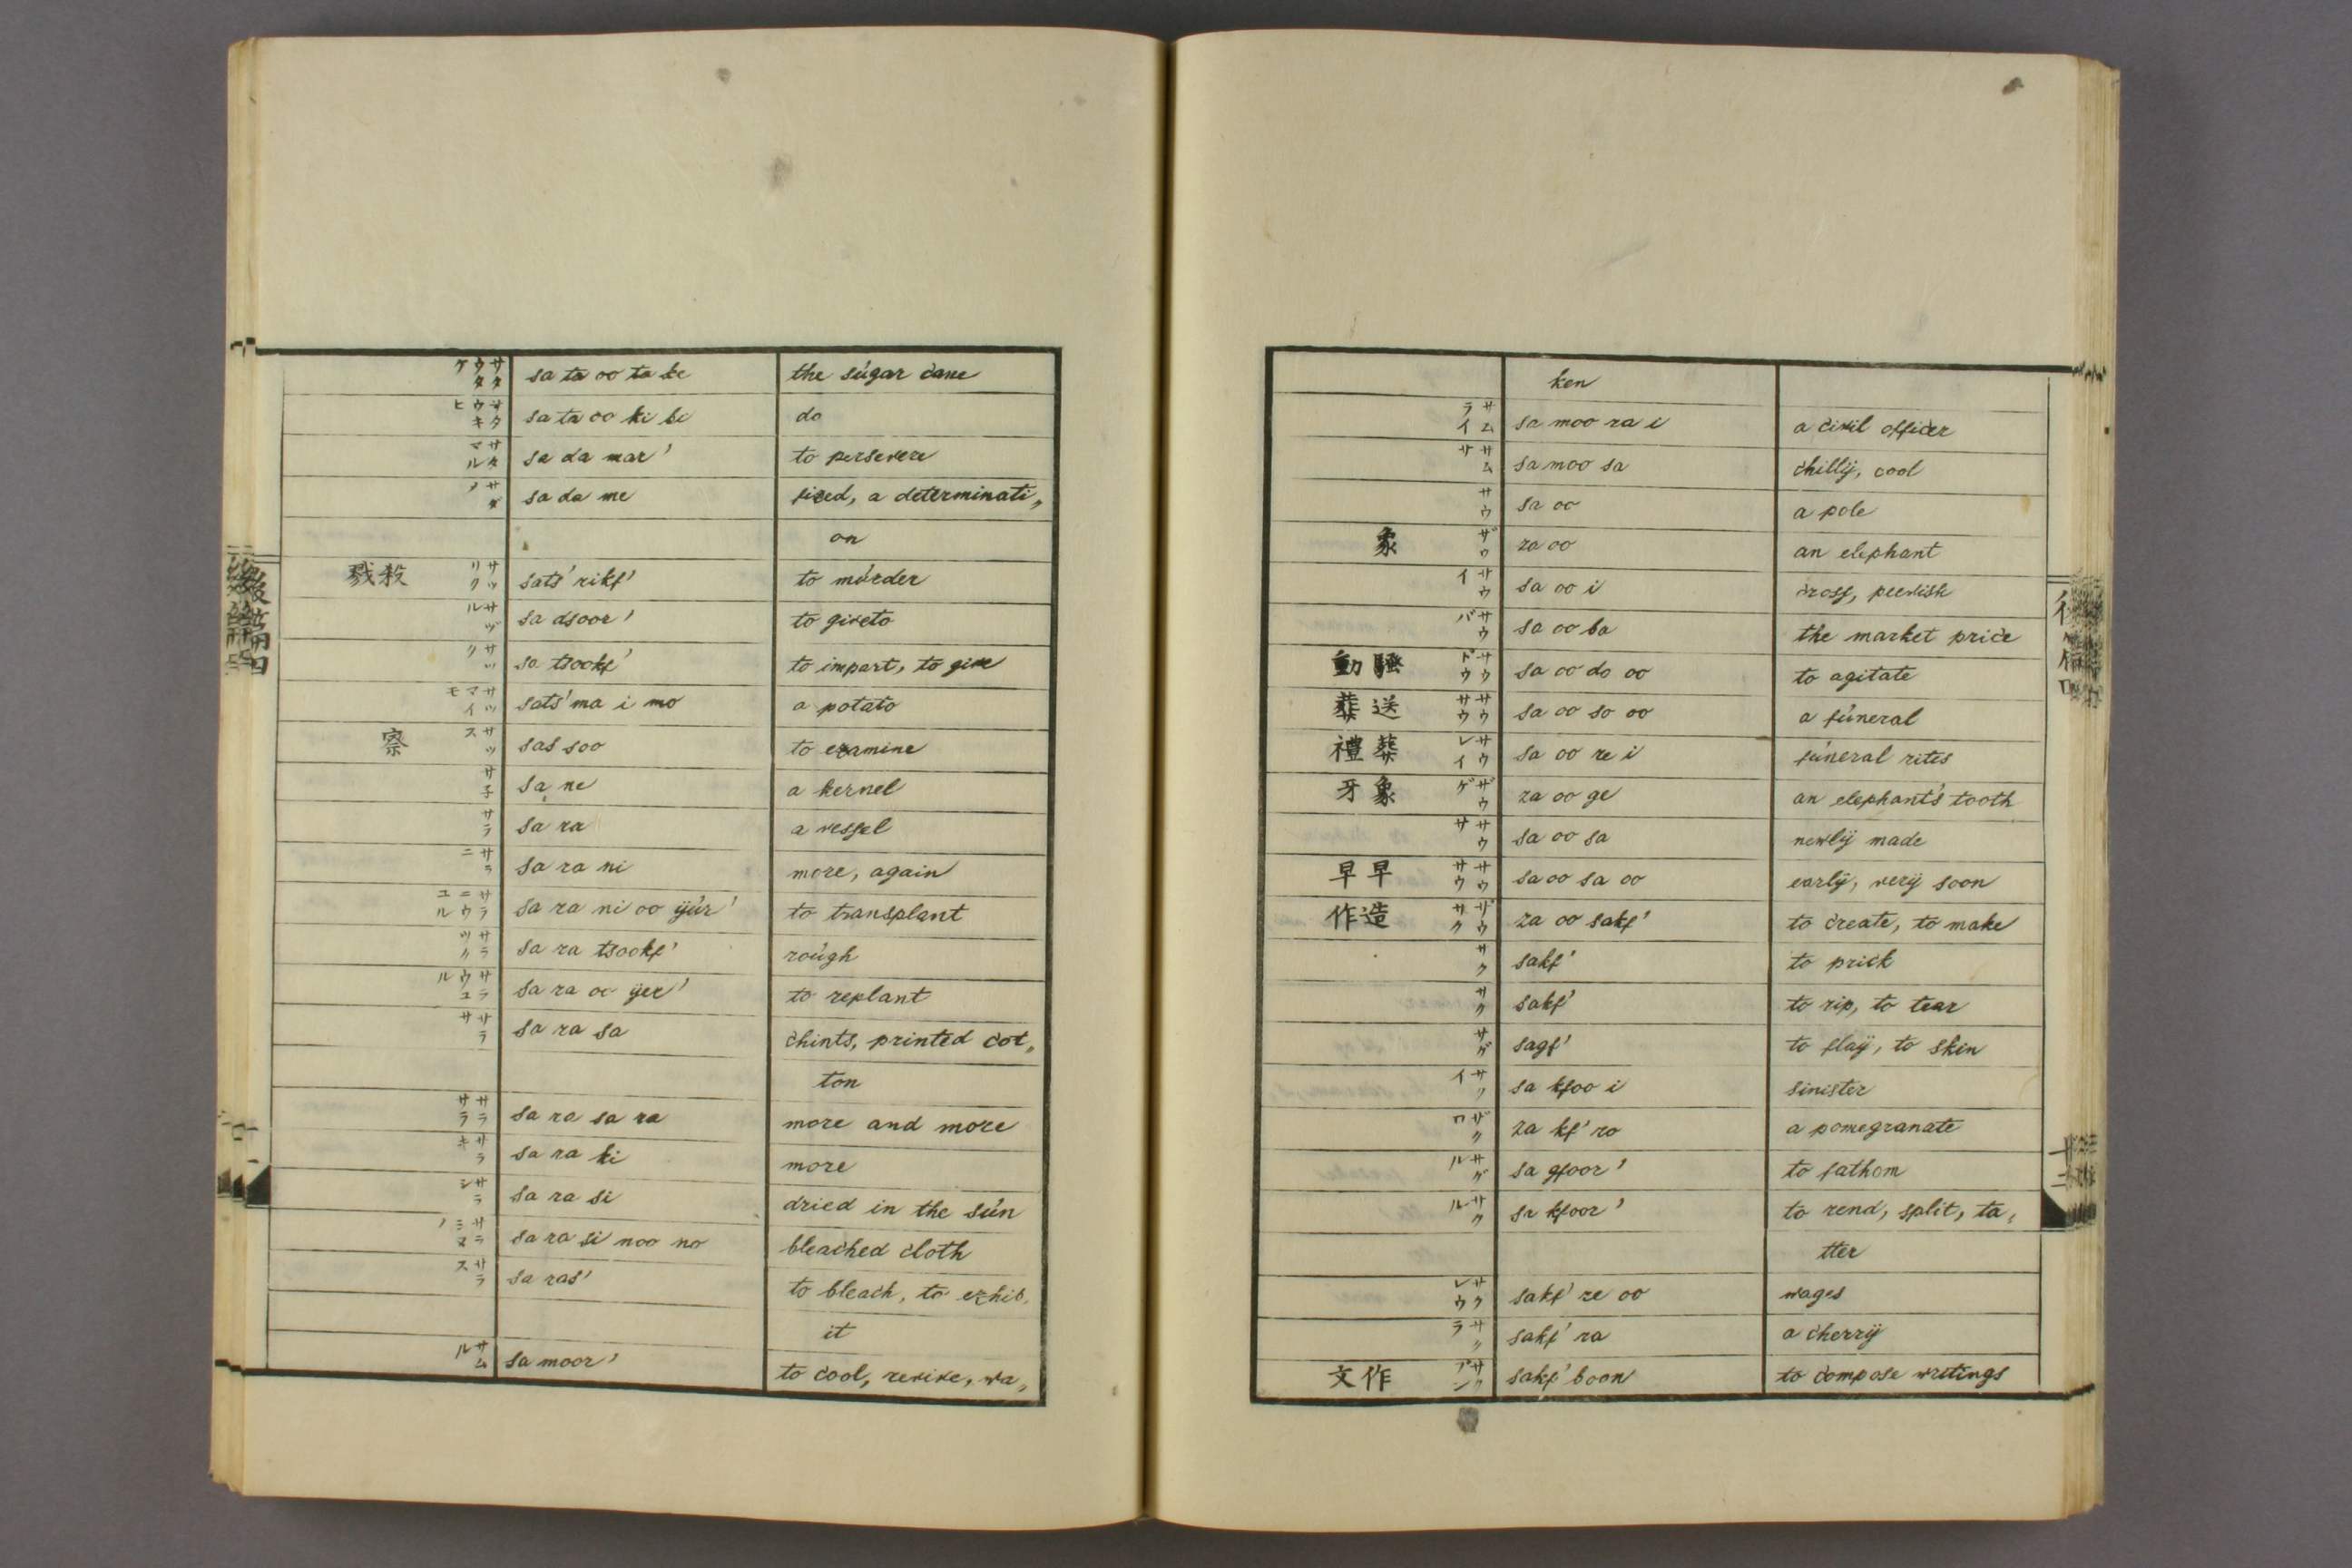 サタウタケ sa ta oo ta ke the súgar cane
サタウキヒ sa ta oo ki bi do
サタマル sa da mar' to persevere
サダメ sa da me fixed, a determinati„
on
殺戮 サツリク sats' rikf' to múrder
サヅル sa dsoor' to giveto
サツク sa tsookf' to impart, to give
サツマイモ sats' ma i mo a potato
察 サツス sas soo to examine
サ子 sa ne a kernel
サラ sa ra a vessel
サラニ sa ra ni more, again
サラニウユル sa ra ni oo ÿúr' to transplant
サラツク sa ra tsookf' roúgh
サラウユル sa ra oo ÿer' to replant
サラサ sa ra sa chints, printed cot„
ton
サラサラ sa ra sa ra more and more
サラキ sa ra ki more
サラシ sa ra si dried in the sún
サラシヌノ sa ra si noo no bleached cloth
サラス sa ras' to bleach, to exhib„
it
サムル sa moor' to cool, revive, wa„
ken
サムライ sa moo ra i a civil officer
サムサ sa moo sa chillÿ, cool
サウ sa oo a pole
象 ザウ za oo an elephant
サウイ sa oo i cross, peevish
サウバ sa oo ba the market price
騷動 サウドウ sa oo do oo to agitate
送葬 サウサウ sa oo so oo a fúneral
葬禮 サウレイ sa oo re i fúneral rites
象牙 ザウゲ za oo ge an elephant's tooth
サウサ sa oo sa newlÿ made
早早 サウサウ sa oo sa oo earlÿ, verÿ soon
造作 ザウサク za oo sakf' to create, to make
サク sakf' to prick
サク sakf' to rip, to tear
サグ sagf' to flaÿ, to skin
サクイ sa kfoo i sinister
ザクロ za kf' ro a pomegranate
サグル sa gfoor' to fathom
サクル sa kfoor' to rend, split, ta„
tter
サクレウ sakf' re oo wages
サクラ sakf' ra a cherrÿ
作文 サクブン sakf' boon to compose writings